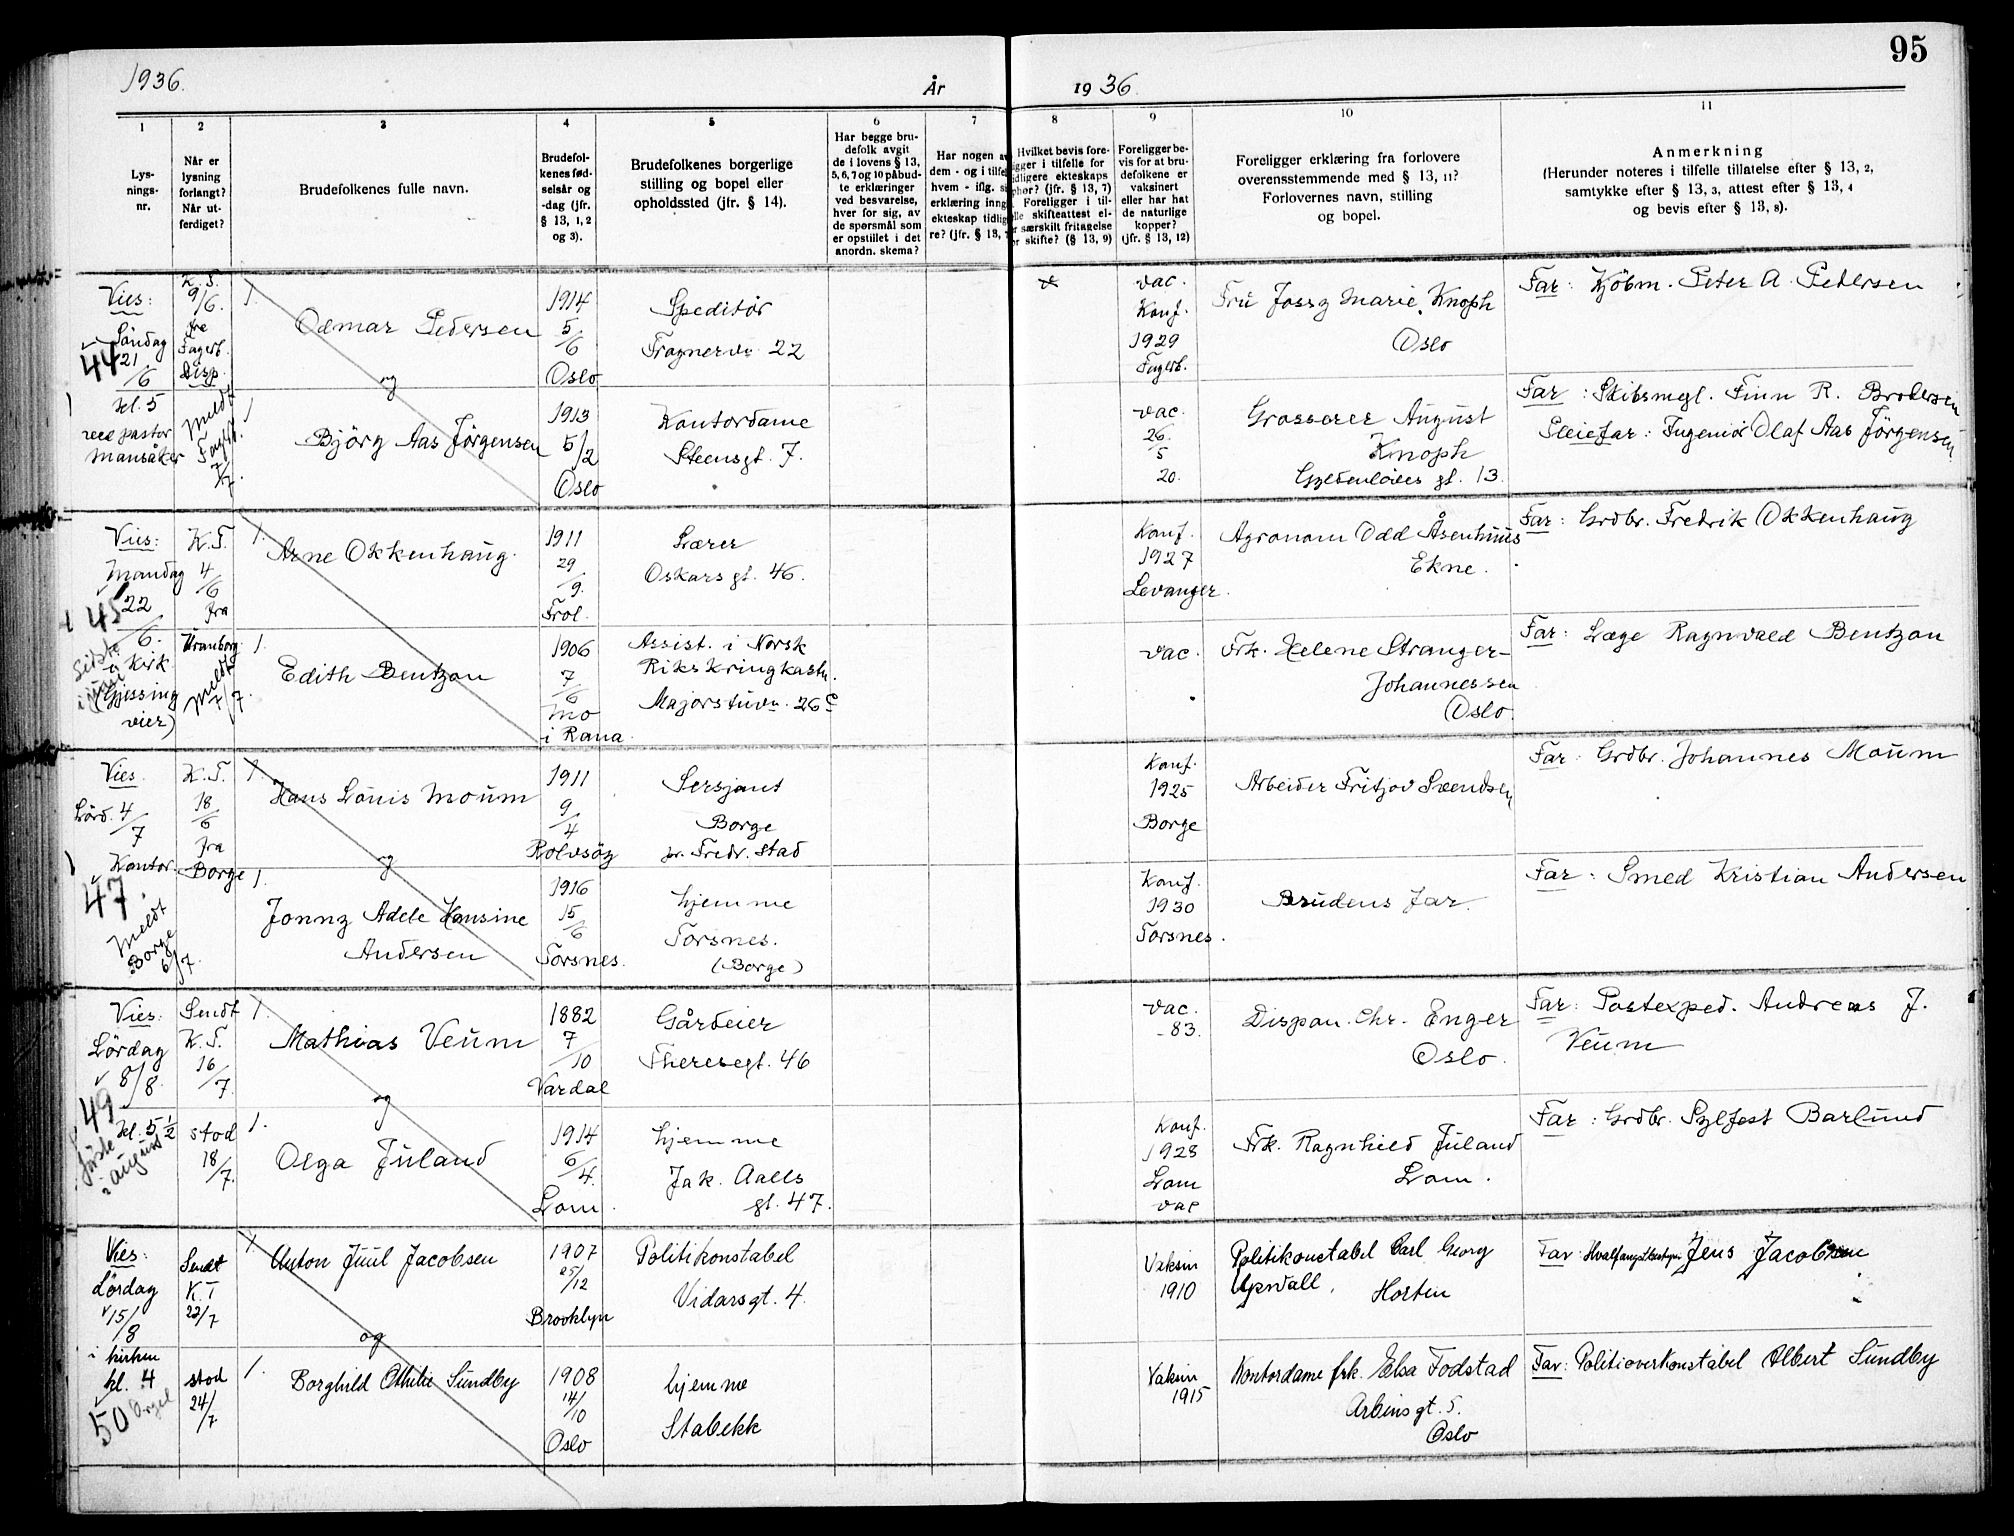 95
1936.
År
19 36.
1
2
3
4
5
6
7
8
9
10
11
Lys-
nings-
nr.
Når er
lysning
forlangt?
Når ut-
ferdiget?
Brudefolkenes fulle navn.
Brudefol-
kenes fød-
selsår og
-dag (jfr.
§ 13, 1, 2
og 3).
Brudefolkenes borgerlige
stilling og bopel eller
opholdssted (jfr. § 14).
Har begge bru-
defolk avgit
de i lovens § 13,
5, 6, 7 og 10 påbud-
te erklæringer
ved besvarelse,
hver for sig, av
de spørsmål som
er opstillet i det
anordn. skema?
Har nogen a
dem - og i tilfel
hvem - iflg. si
erklæring inng
ekteskap tidlig
re? (jfr. § 13,
Hvilket bevis fore-
igger i tilfelle for
idligere ekteskaps
phør? (jfr. § 13, 7)
Foreligger i til-
elle skifteattest el-
r særskilt fritagelse
or skifte? (§ 13, 9)
Foreligger be-
vis for at bru-
defolkene er
vaksinert
eller har hat
de naturlige
kopper?
(jfr. § 13, 12)
Foreligger erklæring fra forlovere
overensstemmende med § 13, 11?
Forlovernes navn, stilling
og bopel.
Anmerkning
(Herunder noteres i tilfelle tillatelse efter § 13, 2,
samtykke efter § 13, 3, attest efter § 13, 4
og bevis efter § 13, 8).
Vies:
Söndag
44 21/6
kl. 5
ved pastor
Mansåker
K. T.
9/6.
fra
Fagerb.
Disp.
Meldt
Fagerb.
7/7.
1.
Odmar Pedersen
og
1914
5/6
Oslo
Speditör
Frognervn 22
vac.
Konf.
1929
Fagerb.
Fru Jossy Marie Knoph
Oslo
Far: Kjöbm. Peter A. Pedersen
1
Björg Aas Jörgensen
1913
5/2
Oslo
Kontordame
Steensgt. 7.
vac.
26/5
20.
Grosserer August
Knoph
Gyldenlöves gt. 13.
Far: Skibsmegl. Finn R. Brodersen
Pleiefar: Ingeniör Olaf Aas Jörgensen
Vies:
Mandag
45 22/6.
Sidste
i juni
i kirk
(Gjessing
vier)
K.T.
4/6
fra
Uranborg
Meldt
7/7.
1.
Arne Okkenhaug.
1911
29/9.
Frol.
Lærer
Oskars gt. 46.
Konf.
1927
Levanger.
Agronom Odd Åsenhuus
Ekne.
Far: Grdbr. Fredrik Okkenhaug
1.
Edith Bentzon
1906
7/6
Mo
i Rana.
Assist. i Norsk
Rikskringkastn.
Majorstuvn. 26 c
vac.
Frk. Helene Stranger-
Johannessen
Oslo.
Far: Læge Ragnvald Bentzon
Vies.
Lörd. 4/7
Kontor.
47.
Meldt
Borge
6/7.
K.T.
18/6
fra
Borge
1.
Hans Louis Moum
og
1911
9/4
Rolvsöy
Sersjant
Borge
pr. Fredr.stad
Konf.
1925
Borge
Arbeider Fritjov Svendsen
Far: Grdbr. Johannes Moum
1.
Jonny Adele Hansine
Andersen
1916
15/6
Torsnes.
hjemme
Torsnes.
(Borge)
Konf.
1930
Torsnes.
Brudens far.
Far: Smed Kristian Andersen
Vies:
Lördag
8/8.
49
kl. 5 1/2
förste
i august
Sendt
K.T.
16/7.
stod
18/7.
1.
Mathias Veum
og
1882
7/10
Vardal
Gårdeier
Theresegt. 46
vac.
-83.
Dispon. Chr. Enger
Oslo.
Far: Postexped. Andreas J.
Veum
1.
Olga Juland
1914
6/4.
Lom.
hjemme
Jak. Aalls
gt. 47.
Konf.
1928
Lom
vac
Frk. Ragnhild Juland
Lom.
Far: Grdbr. Sylfest Barlund
Vies:
Lördag
15/8
i kirken
kl. 4
50 Orgel
Sendt
K.T
22/7
stod
24/7.
1.
Anton Juul Jacobsen
og
1907
25/12
Brooklyn
Politikonstabel
Vidarsgt. 4.
Vaksin
1910
Politikonstabel Carl Georg
Upwall, Horten
Far: Hvalfangstbestyrer Jens Jacobsen
1.
Borghild Othilie Sundby
1908
14/10
Oslo
hjemme
Stabekk
Vaksin
1915
Kontordame frk. Elsa Todstad
Arbins gt. 5.
Oslo
Far: Politioverkonstabel Albert Sundby